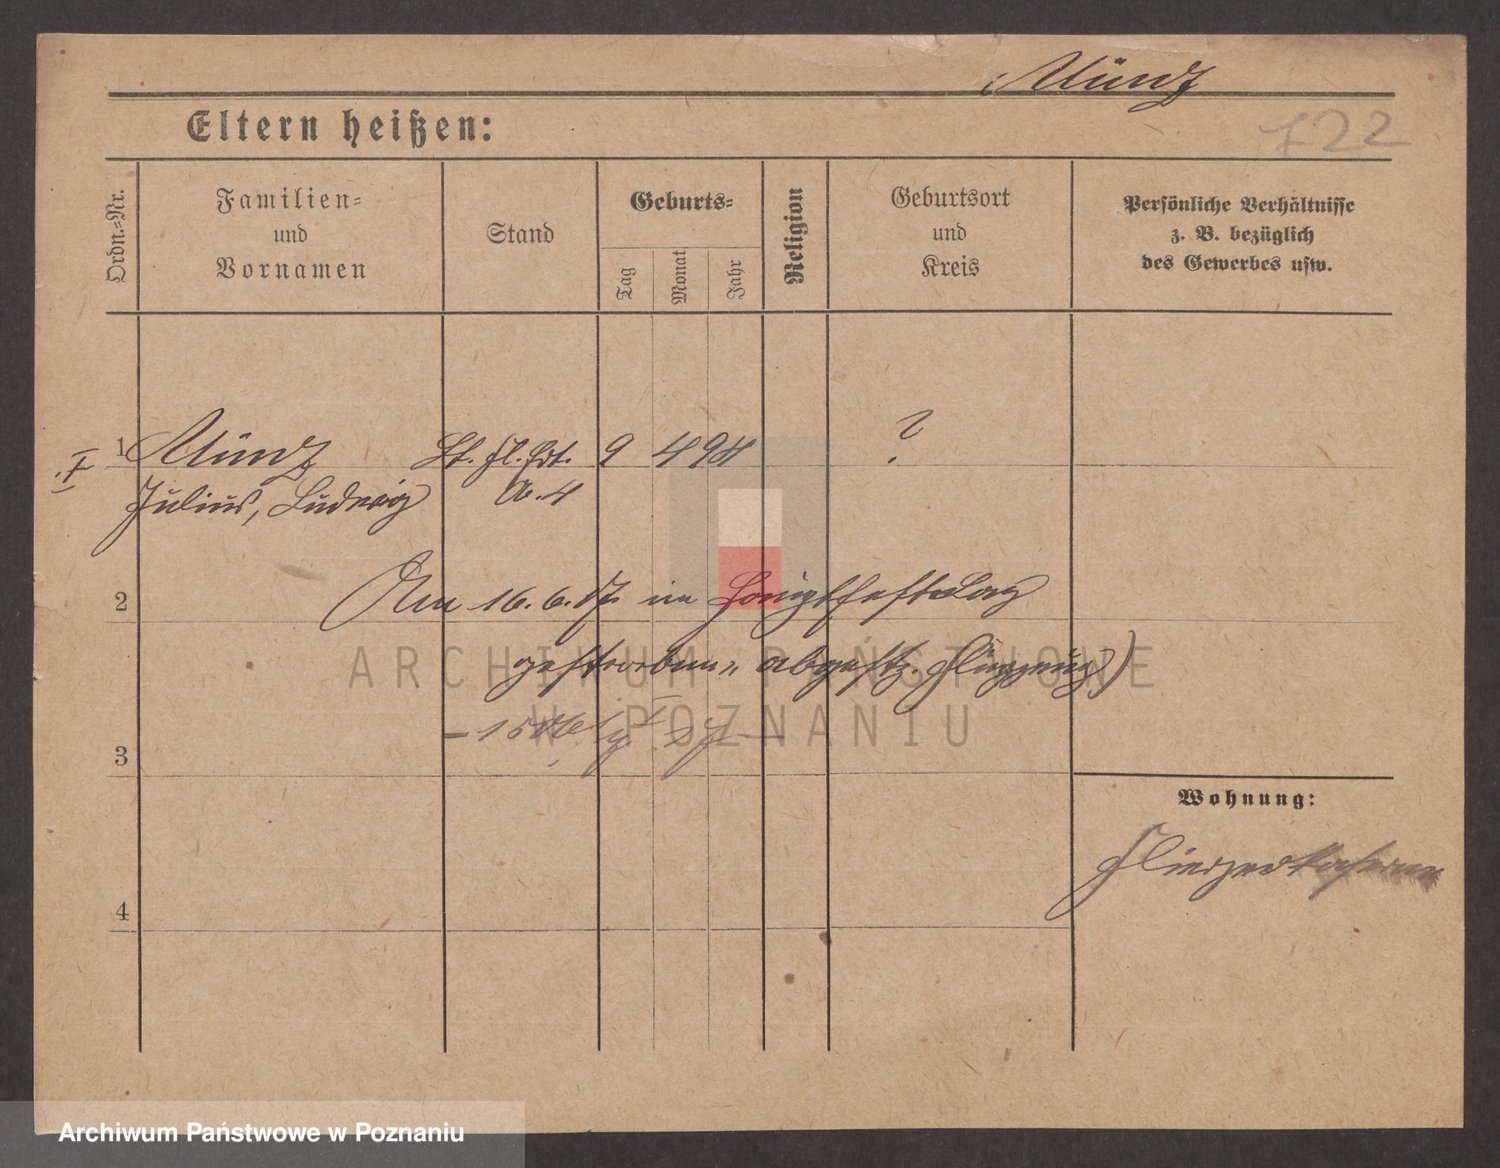 Münz
722
Eltern heißen:
Ordn.-Nr.
Familien-
und
Vornamen
Stand
Geburts-
Tag
Monat
Jahr
Religion
Geburtsort
und
Kreis
Persönliche Verhältnisse
z. B. bezüglich
des Gewerbes usw.
1 Münz 9 4 98 ?
Julius, Ludwig
2
Am 16.6.17 im
gestorben abgestz. Flugzeug)
3
Wohnung:
Fliegerkaserne
4
ARCHIWUM PAŃSTWOWE
W POZNANIU
Archiwum Państwowe w Poznaniu